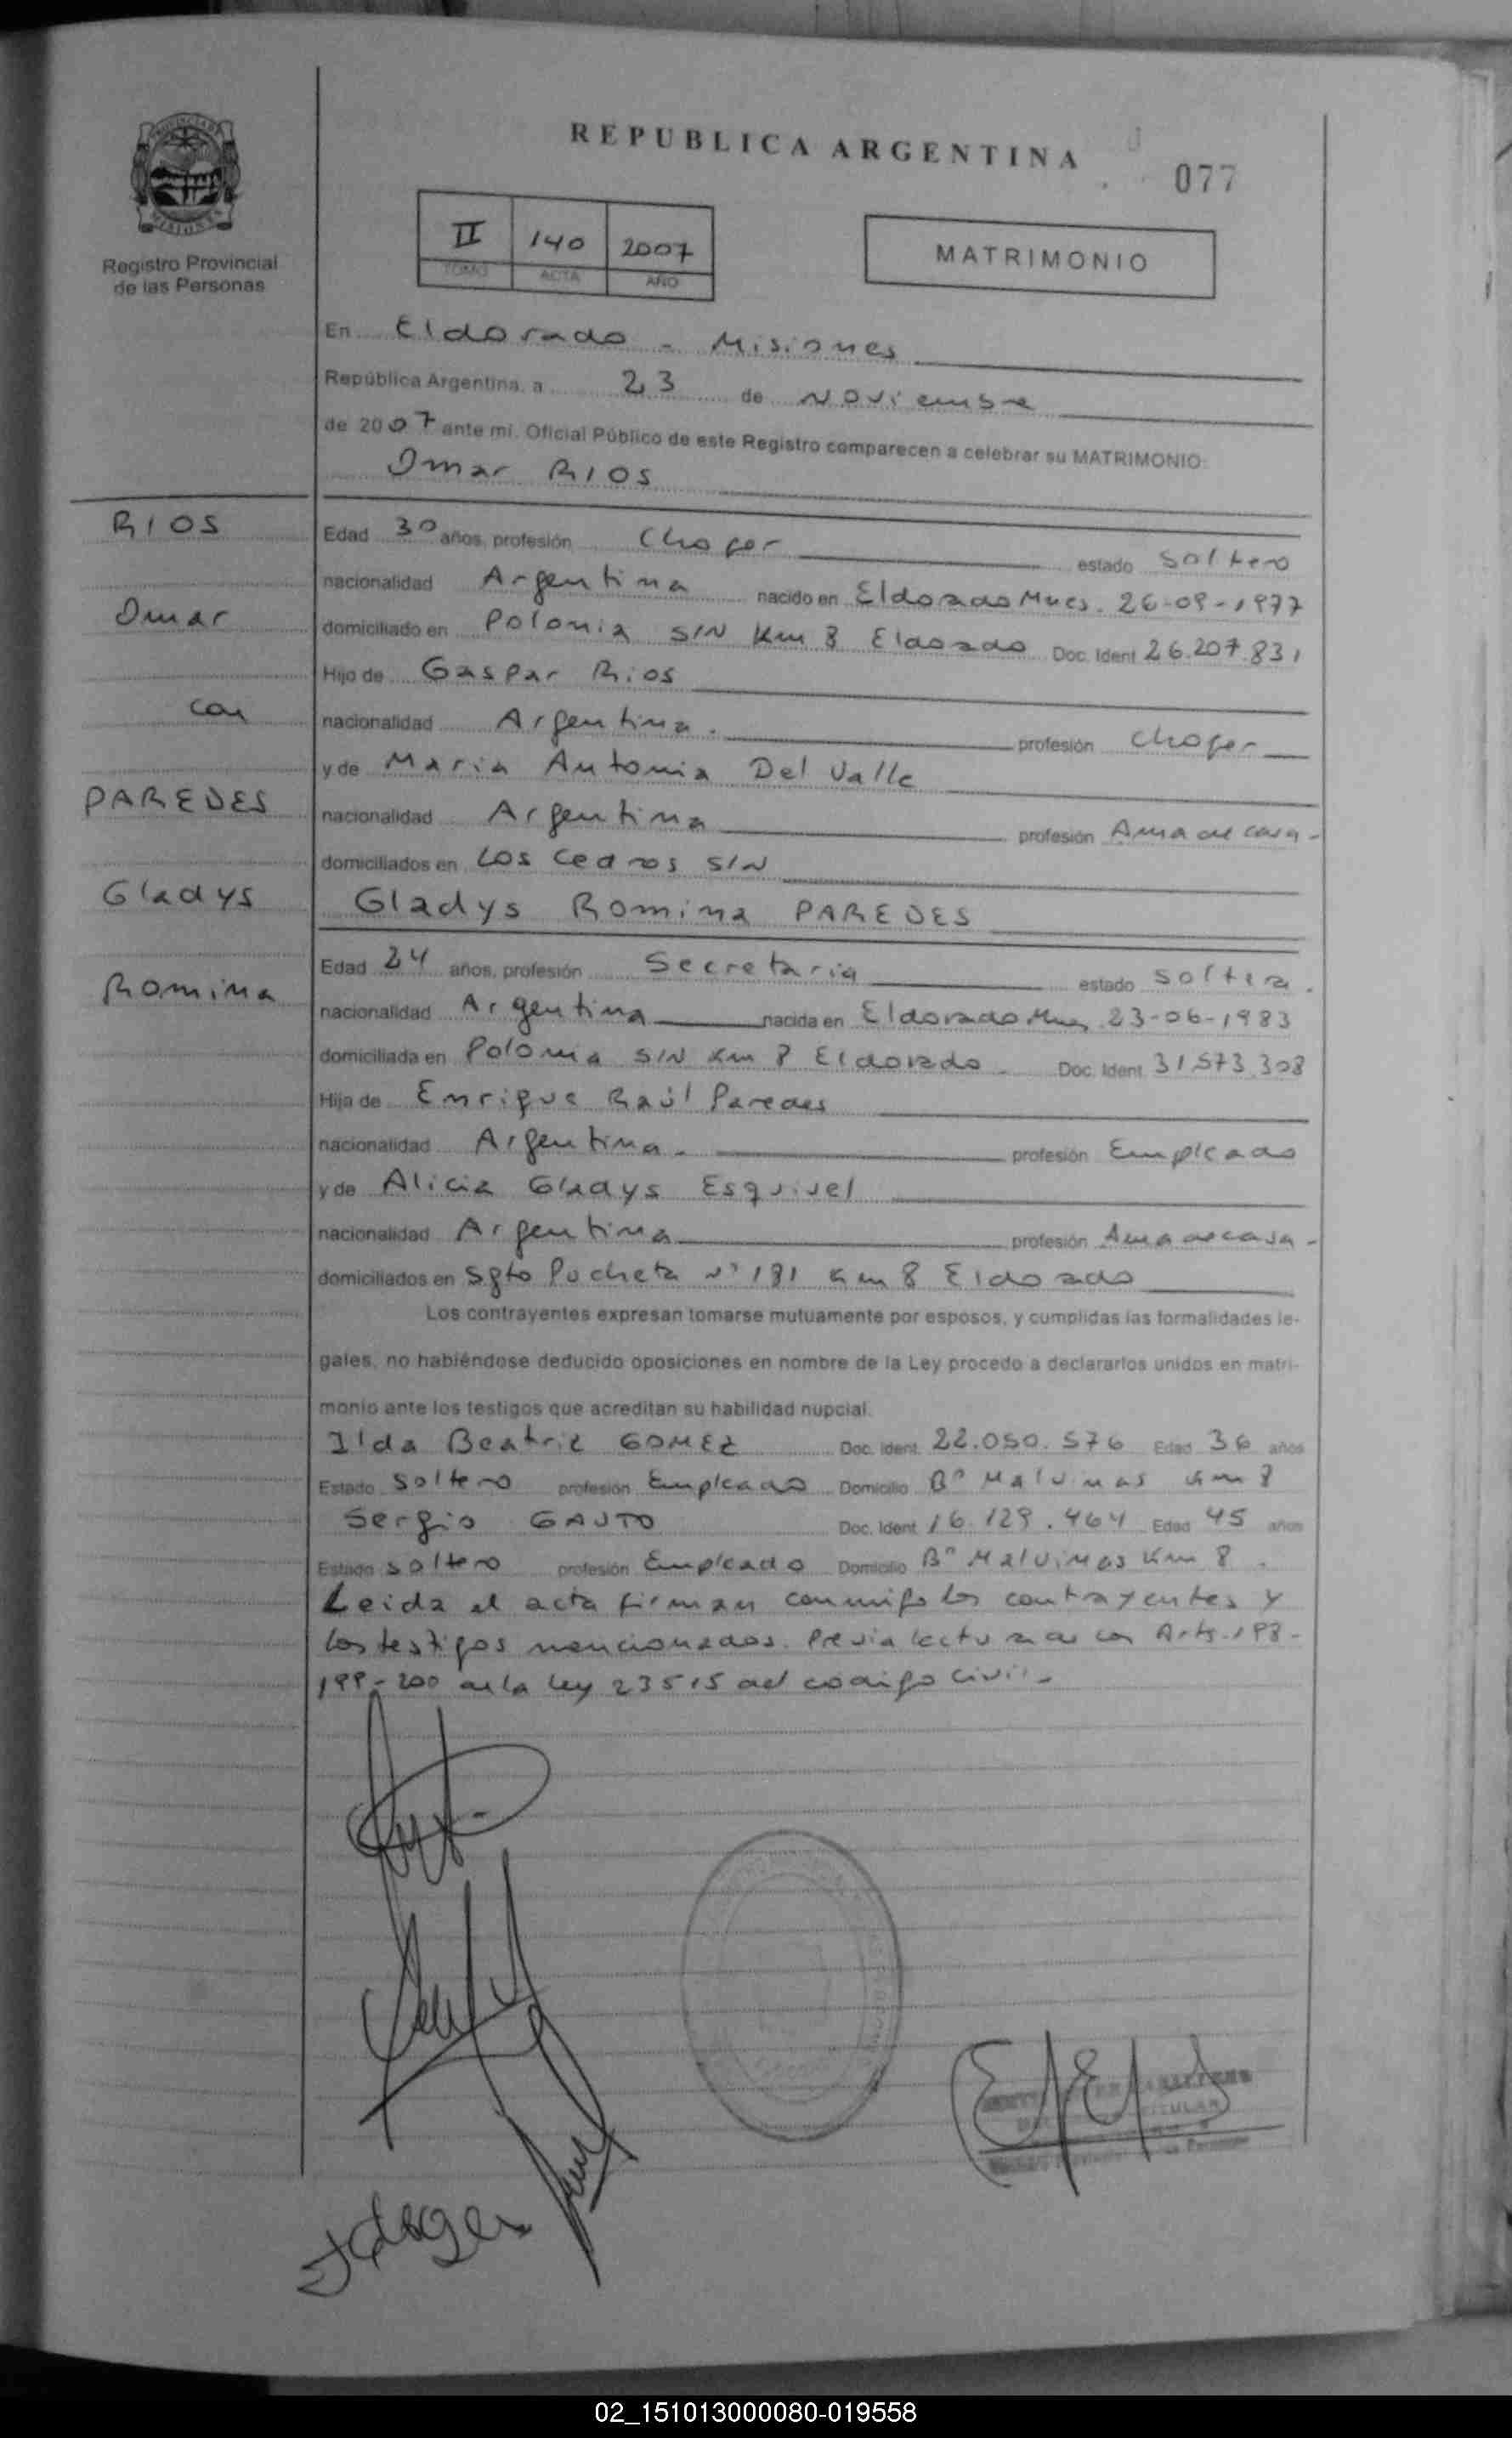 REPUBLICA ARGENTINA
077
Registro Provincial
de las Personas
II 140 2007
TOMO ACTA AÑO
MATRIMONIO
En Eldorado - Misiones
República Argentina, a 23 de Noviembre
de 2007 ante mí, Oficial Público de este Registro comparecen a celebrar su MATRIMONIO:
Omar RIOS
RIOS
Omar
con
PAREDES
Gladys
Romina
Edad 30 años, profesión Chofer estado Soltero
nacionalidad Argentina nacido en Eldorado Mnes. 26-09-1977
domiciliado en Polonia S/N Km 8 Eldorado Doc. Ident 26.207.831
Hijo de Gaspar Rios
nacionalidad Argentina. profesión Chofer
y de Maria Antonia Del Valle
nacionalidad Argentina profesión Ama de casa-
domiciliados en Los Cedros S/N
Gladys Romina PAREDES
Edad 24 años, profesión Secretaria estado Soltera.
nacionalidad Argentina nacida en Eldorado Mnes 23-06-1983
domiciliada en Polonia S/N Km 8 Eldorado Doc. Ident 31.573.308
Hija de Enrique Raúl Paredes
nacionalidad Argentina. profesión Empleado
y de Alicia Gladys Esquivel
nacionalidad Argentina profesión Ama de casa-
domiciliados en Sgto Pocheta N° 181 Km 8 Eldorado
Los contrayentes expresan tomarse mutuamente por esposos, y cumplidas las formalidades le-
gales, no habiéndose deducido oposiciones en nombre de la Ley procedo a declararlos unidos en matri-
monio ante los testigos que acreditan su habilidad nupcial.
Ilda Beatriz GOMEZ Doc. Ident. 22.050.576 Edad 36 años
Estado Soltero profesión Empleado Domicilio B° Malvinas Km 8
Sergio GAUTO Doc. Ident 16.129.464 Edad 45 años
Estado Soltero profesión Empleado Domicilio B° Malvinas Km 8.
Leida el acta firman conmigo los contrayentes y
los testigos mencionados. Previa lectura de los Arts. 198-
199-200 de la ley 23515 del codigo civil-
02_151013000080-019558